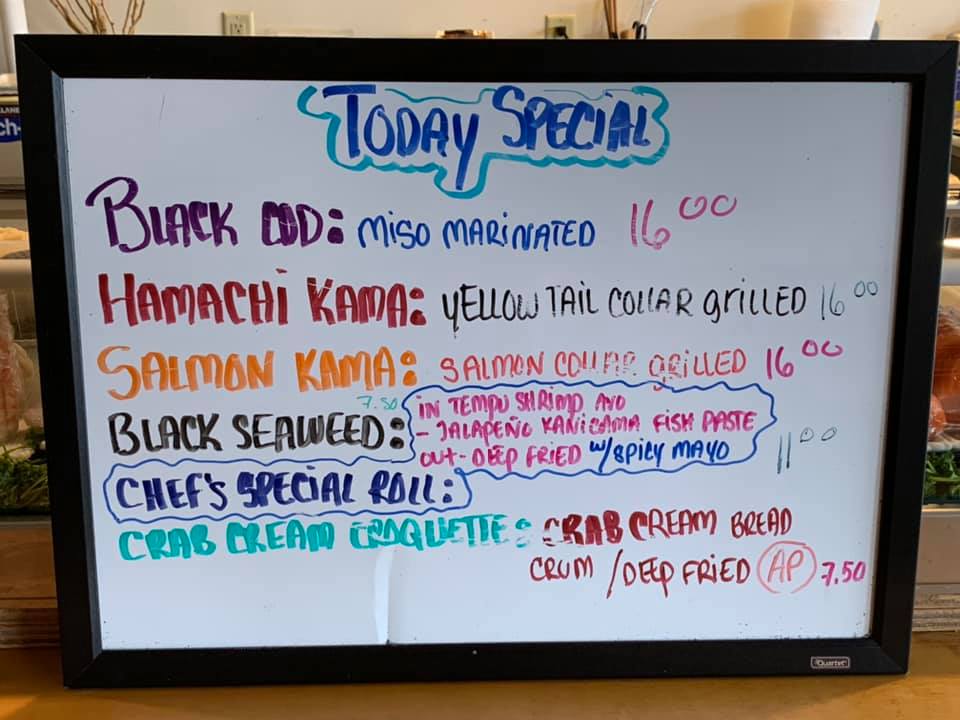 TODAY SPECIAL
BLACK COD: MISO MARINATED 16 00
HAMACHI KAMA: YELLOW TAIL COLLAR GRILLED 16 00
SALMON KAMA: SALMON COLLAR GRILLED 16 00
BLACK SEAWEED: 7.50
CHEF'S SPECIAL ROLL:
IN TEMPU SHRIMP AVO
- JALAPEÑO KANICAMA FISH PASTE
OUT- DEEP FRIED W/SPICY MAYO 11 00
CRAB CREAM CROQUETTE: CRAB CREAM BREAD
CRUM / DEEP FRIED AP 7.50
Quartet